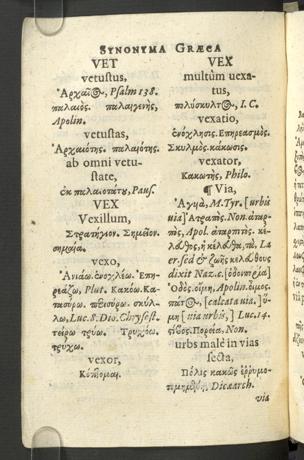 SYNONYMA GRÆCA
VET
vetustus,
Ἀρχαῖος, Psalm 138.
παλαιός. παλαιγενὴς,
Apolin.
vetustas,
Ἀρχαιότης. παλαιότης.
ab omni vetu-
state,
ἐκ παλαιοτάτου, Paus.
VEX
Vexillum,
Στρατήγιον. Σημεῖον.
σημαία.
vexo,
Ἀνιάω. ἐνοχλέω. Ἐπη-
ρεάζω, Plut. Κακόω. Κα-
σκύλ-
λω, Luc. 8. Dio. Chrysost.
τείρω τρύω. Τρυχόω.
τρύχω.
vexor,
Κήδομαι.
VEX
multùm uexa-
tus,
πολύσκυλτος, I. C.
vexatio,
ἐνόχλησις. Επηρεασμὸς.
Σκυλμὸς. κάκωσις.
vexator,
Κακωτὴς, Philo.
¶ Via,
Ἀγυιὰ, M. Tyr. [urbis
uia] Ἀτραπὸς. Non. ἀταρ-
πὸς, Apol. ἀταρπιτὸς. κέ-
λευθος, ἡ κέλευθα, τὰ, La
er. sed & ζωῆς κελεύθους
dixit Naz. c. [ὁδοιπορία]
Ὁδὸς. οἴμη, Apolin. οἶμος.
[calcata uia.]
[uia urbis,] Luc. 14.
Πορεία. Non.
urbs malè in vias
secta,
Πόλις κακῶς ἐῤῥυμο-
τομημένης. Dicaarch.
via